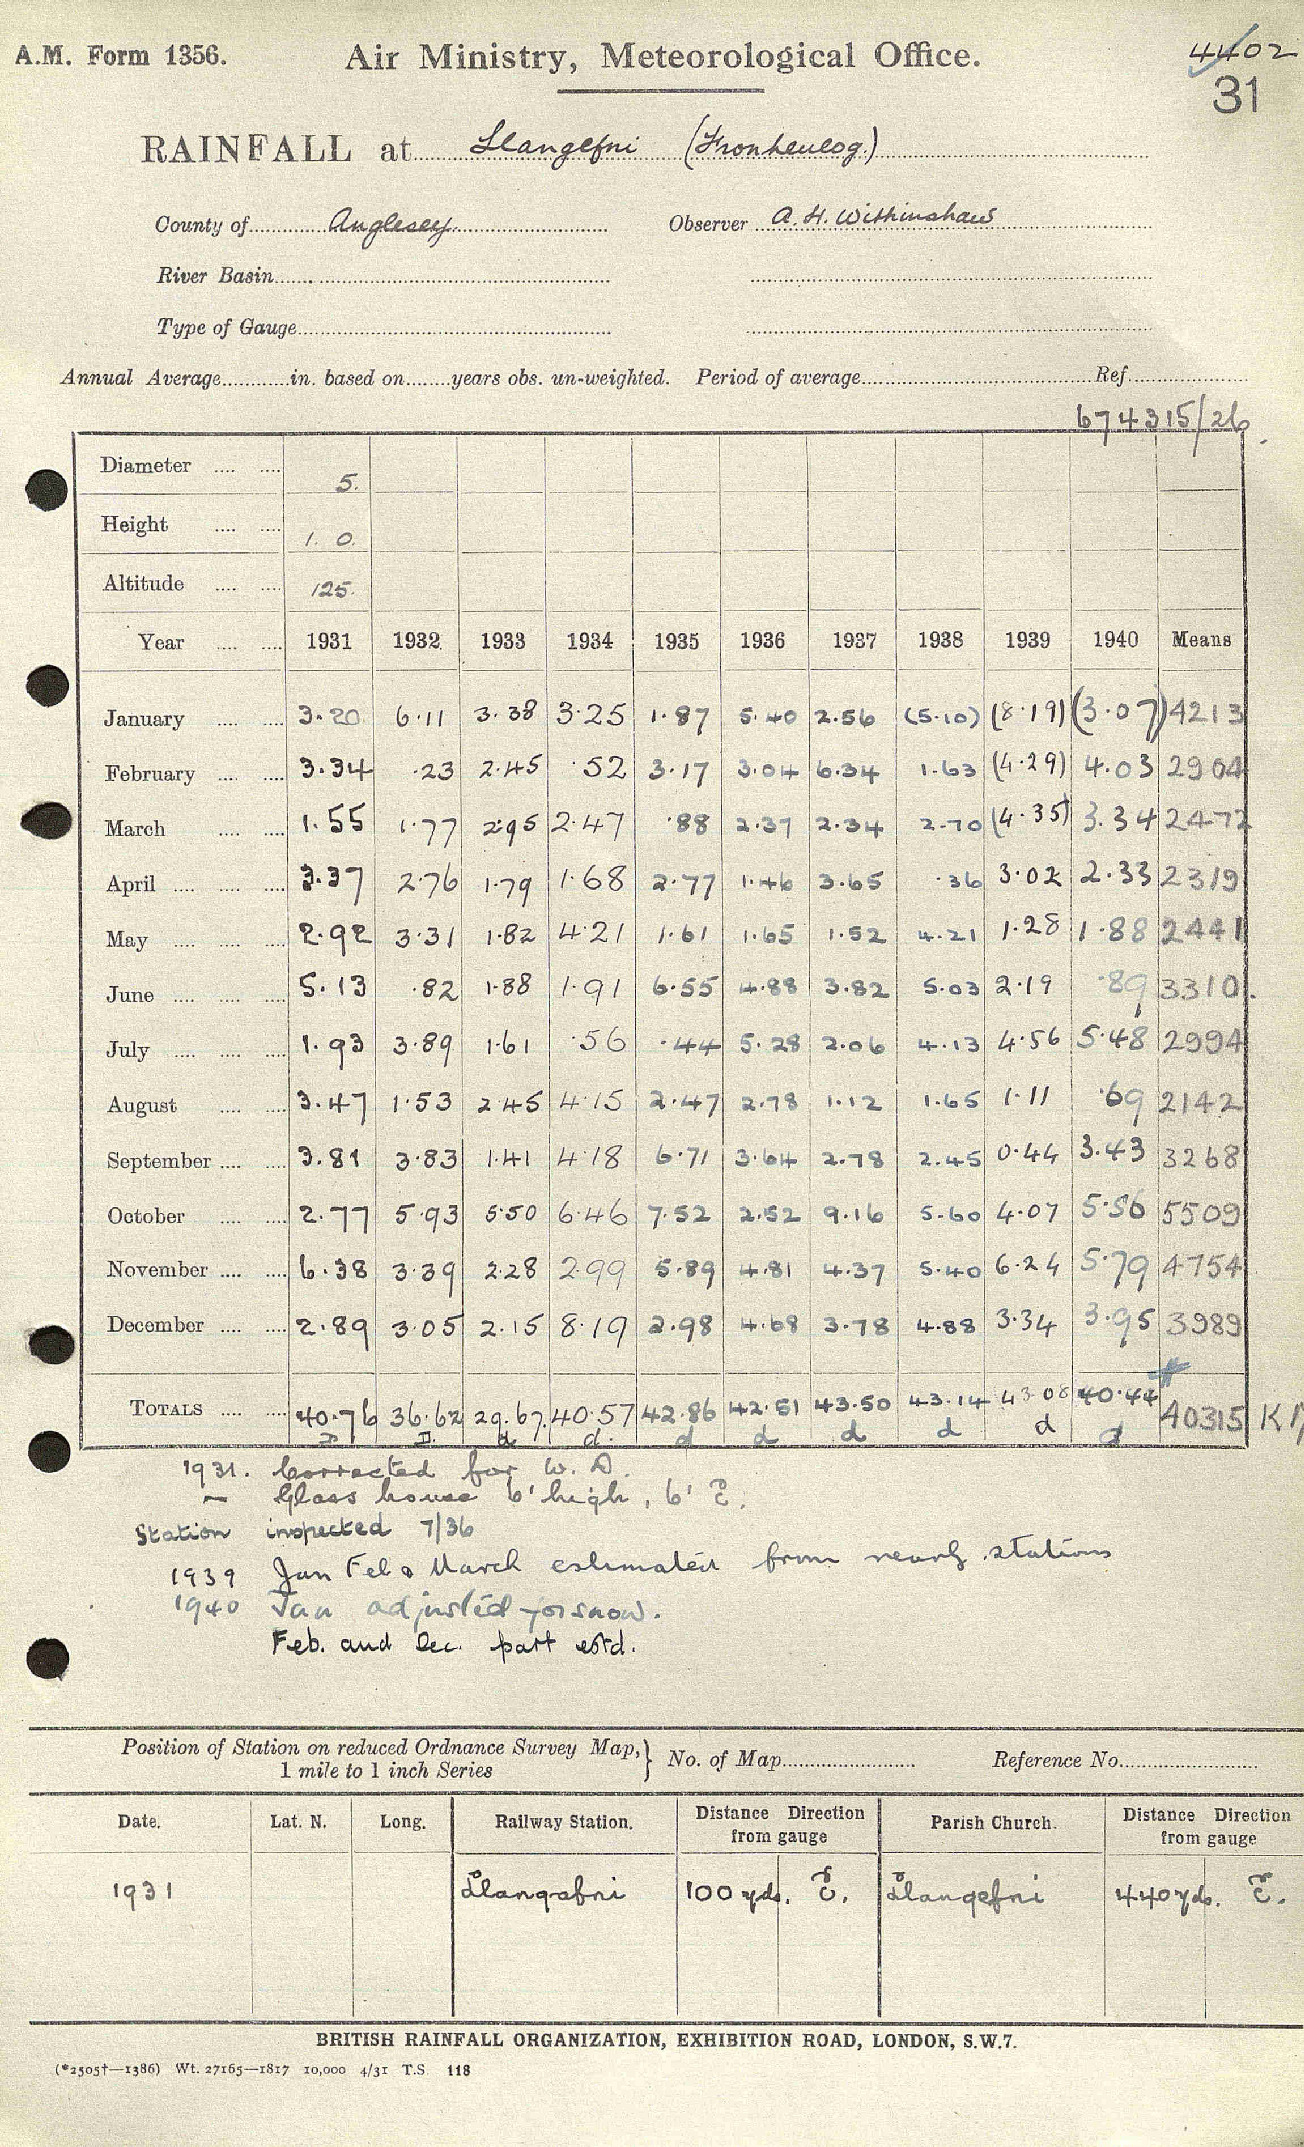 A.M. Form 1356.
Air Ministry, Meteorological Office.
4402
31
RAINFALL at Llangefni (Fronheulog.)
County of Anglesey. Observer A. H. Withinshaw
River Basin
Type of Gauge
Annual Average in. based on years obs. un-weighted. Period of average Ref.
674315/26
Diameter 5.
Height 1. 0.
Altitude 125.
Year 1931 1932 1933 1934 1935 1936 1937 1938 1939 1940 Means
January 3.20 6.11 3.38 3.25 1.87 5.40 2.56 (5.10) (8.19) (3.07) 4213
February 3.34 .23 2.45 .52 3.17 3.04 6.34 1.63 (4.29) 4.03 2904
March 1.55 1.77 2.95 2.47 .88 2.37 2.34 2.70 (4.35) 3.34 2472
April 3.37 2.76 1.79 1.68 2.77 1.46 3.65 .36 3.02 2.33 2319
May 2.92 3.31 1.82 4.21 1.61 1.65 1.52 4.21 1.28 1.88 2441
June 5.13 .82 1.88 1.91 6.55 4.88 3.82 5.03 2.19 .89 3310.
July 1.93 3.89 1.61 .56 .44 5.28 2.06 4.13 4.56 5.48 2994
August 3.47 1.53 2.45 4.15 2.47 2.78 1.12 1.65 1.11 .69 2142
September 3.81 3.83 1.41 4.18 6.71 3.64 2.78 2.45 0.44 3.43 3268
October 2.77 5.93 5.50 6.46 7.52 2.52 9.16 5.60 4.07 5.56 5509
November 6.38 3.39 2.28 2.99 5.89 4.81 4.37 5.40 6.24 5.79 4754
December 2.89 3.05 2.15 8.19 2.98 4.68 3.78 4.88 3.34 3.95 3989
TOTALS 40.76 36.62 29.67. 40.57 42.86 42.51 43.50 43.14 43.08 40.44 40315
D D d d. d d d d d d
1931. Corrected for W. D.
Glass house 6' high, 6' E.
Station inspected 7/36
1939 Jan Feb & March estimated from nearby stations
1940 Jan adjusted for snow.
Feb. and Dec. part estd.
Position of Station on reduced Ordnance Survey Map, 1 mile to 1 inch Series } No. of Map Reference No.
Date. Lat. N. Long. Railway Station. Distance Direction from gauge Parish Church. Distance Direction from gauge
1931 Llangefni 100 yds. E. Llangefni 440 yds. E.
BRITISH RAINFALL ORGANIZATION, EXHIBITION ROAD, LONDON, S.W.7.
(*2505†—1386) Wt. 27165—1817 10,000 4/31 T.S. 118